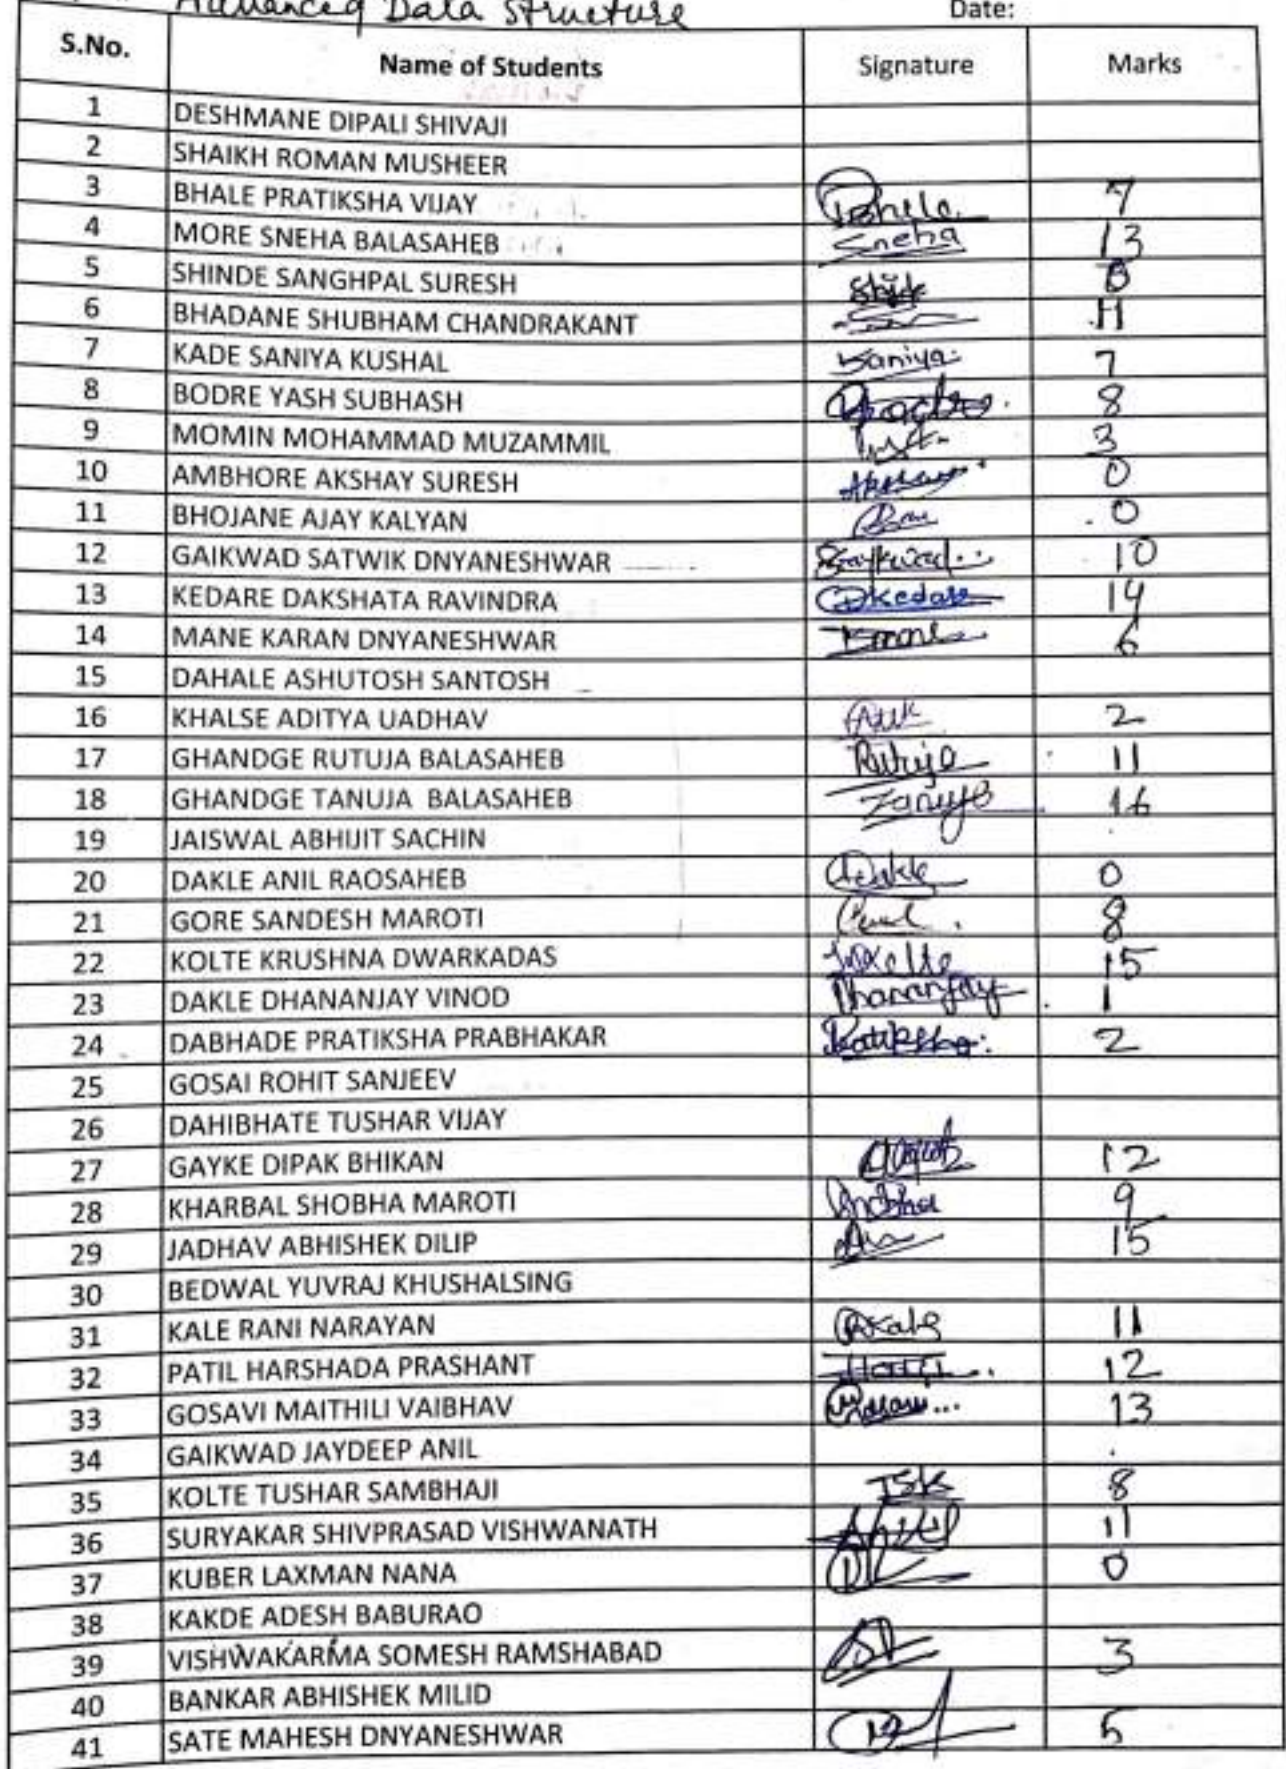 Advanced Data Structure Date:
S.No. Name of Students Signature Marks
1 DESHMANE DIPALI SHIVAJI
2 SHAIKH ROMAN MUSHEER
3 BHALE PRATIKSHA VIJAY Bhale 7
4 MORE SNEHA BALASAHEB Sneha 13
5 SHINDE SANGHPAL SURESH
6 BHADANE SHUBHAM CHANDRAKANT 11
7 KADE SANIYA KUSHAL Saniya 7
8 BODRE YASH SUBHASH 8
9 MOMIN MOHAMMAD MUZAMMIL 3
10 AMBHORE AKSHAY SURESH 0
11 BHOJANE AJAY KALYAN 0
12 GAIKWAD SATWIK DNYANESHWAR 10
13 KEDARE DAKSHATA RAVINDRA Dkedare 14
14 MANE KARAN DNYANESHWAR 6
15 DAHALE ASHUTOSH SANTOSH
16 KHALSE ADITYA UADHAV 2
17 GHANDGE RUTUJA BALASAHEB Rutuja 11
18 GHANDGE TANUJA BALASAHEB Tanuja 16
19 JAISWAL ABHIJIT SACHIN
20 DAKLE ANIL RAOSAHEB 0
21 GORE SANDESH MAROTI 8
22 KOLTE KRUSHNA DWARKADAS 15
23 DAKLE DHANANJAY VINOD Dhananjay 1
24 DABHADE PRATIKSHA PRABHAKAR 2
25 GOSAI ROHIT SANJEEV
26 DAHIBHATE TUSHAR VIJAY
27 GAYKE DIPAK BHIKAN 12
28 KHARBAL SHOBHA MAROTI Shobha 9
29 JADHAV ABHISHEK DILIP 15
30 BEDWAL YUVRAJ KHUSHALSING
31 KALE RANI NARAYAN 11
32 PATIL HARSHADA PRASHANT 12
33 GOSAVI MAITHILI VAIBHAV 13
34 GAIKWAD JAYDEEP ANIL
35 KOLTE TUSHAR SAMBHAJI TSK 8
36 SURYAKAR SHIVPRASAD VISHWANATH 11
37 KUBER LAXMAN NANA 0
38 KAKDE ADESH BABURAO
39 VISHWAKARMA SOMESH RAMSHABAD 3
40 BANKAR ABHISHEK MILID
41 SATE MAHESH DNYANESHWAR 5